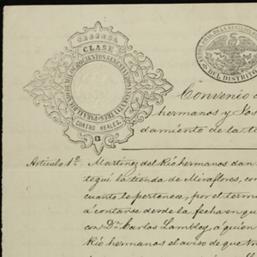 CLASE
CUATRO REALES.
DEL DISTRITO
Convenio
hermanos y Jos
damiento de la t
Articulo 1º Martinez del Rio hermanos dan
tegui la tienda de Miraflores, com
cuanto le pertenece, por el term
á contarse desde la fecha en qu
con Dn. Carlos Lambley, á quien
Rio hermanos el aviso de que tra